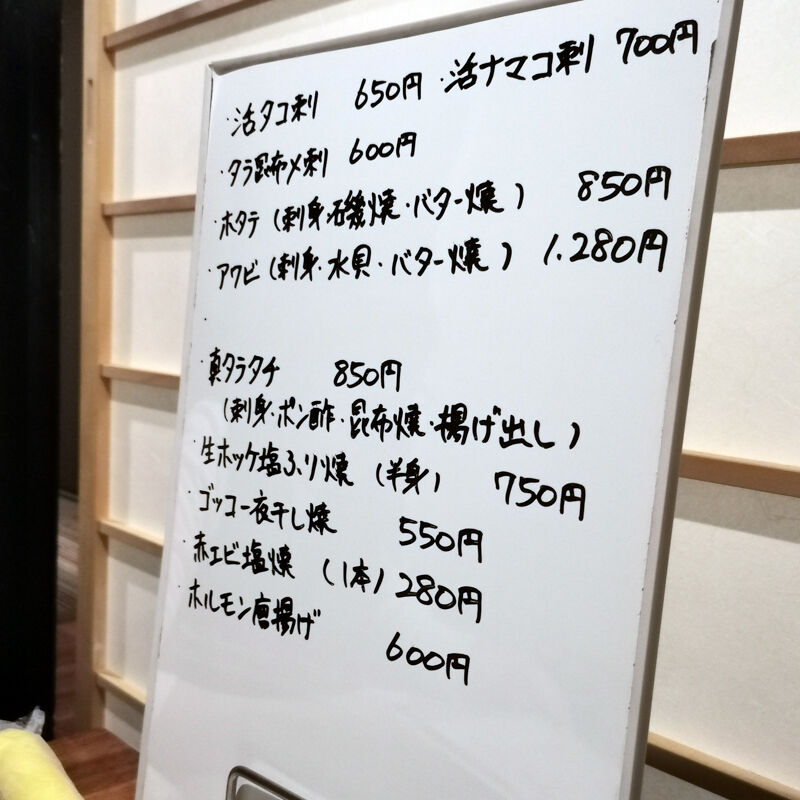 ・活タコ刺 650円 ・活ナマコ刺 700円
・タラ昆布〆刺 600円
・ホタテ (刺身・磯焼・バター焼) 850円
・アワビ (刺身・水貝・バター焼) 1.280円
・
・真タラタチ 850円
(刺身・ポン酢・昆布焼・揚げ出し)
・生ホッケ塩ふり焼 (半身) 750円
・ゴッコ一夜干し焼 550円
・赤エビ塩焼 (1本) 280円
・ホルモン唐揚げ 600円